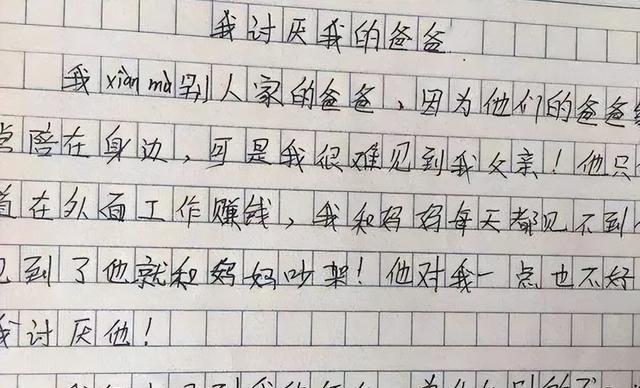 我讨厌我的爸爸
我xiàn mù别人家的爸爸、因为他们的爸爸
陪在身边，可是我很难见到我父亲！他只
在外面工作赚钱，我和妈妈每天都见不到
见到了他就和妈妈吵架！他对我一点也不好
我讨厌他！